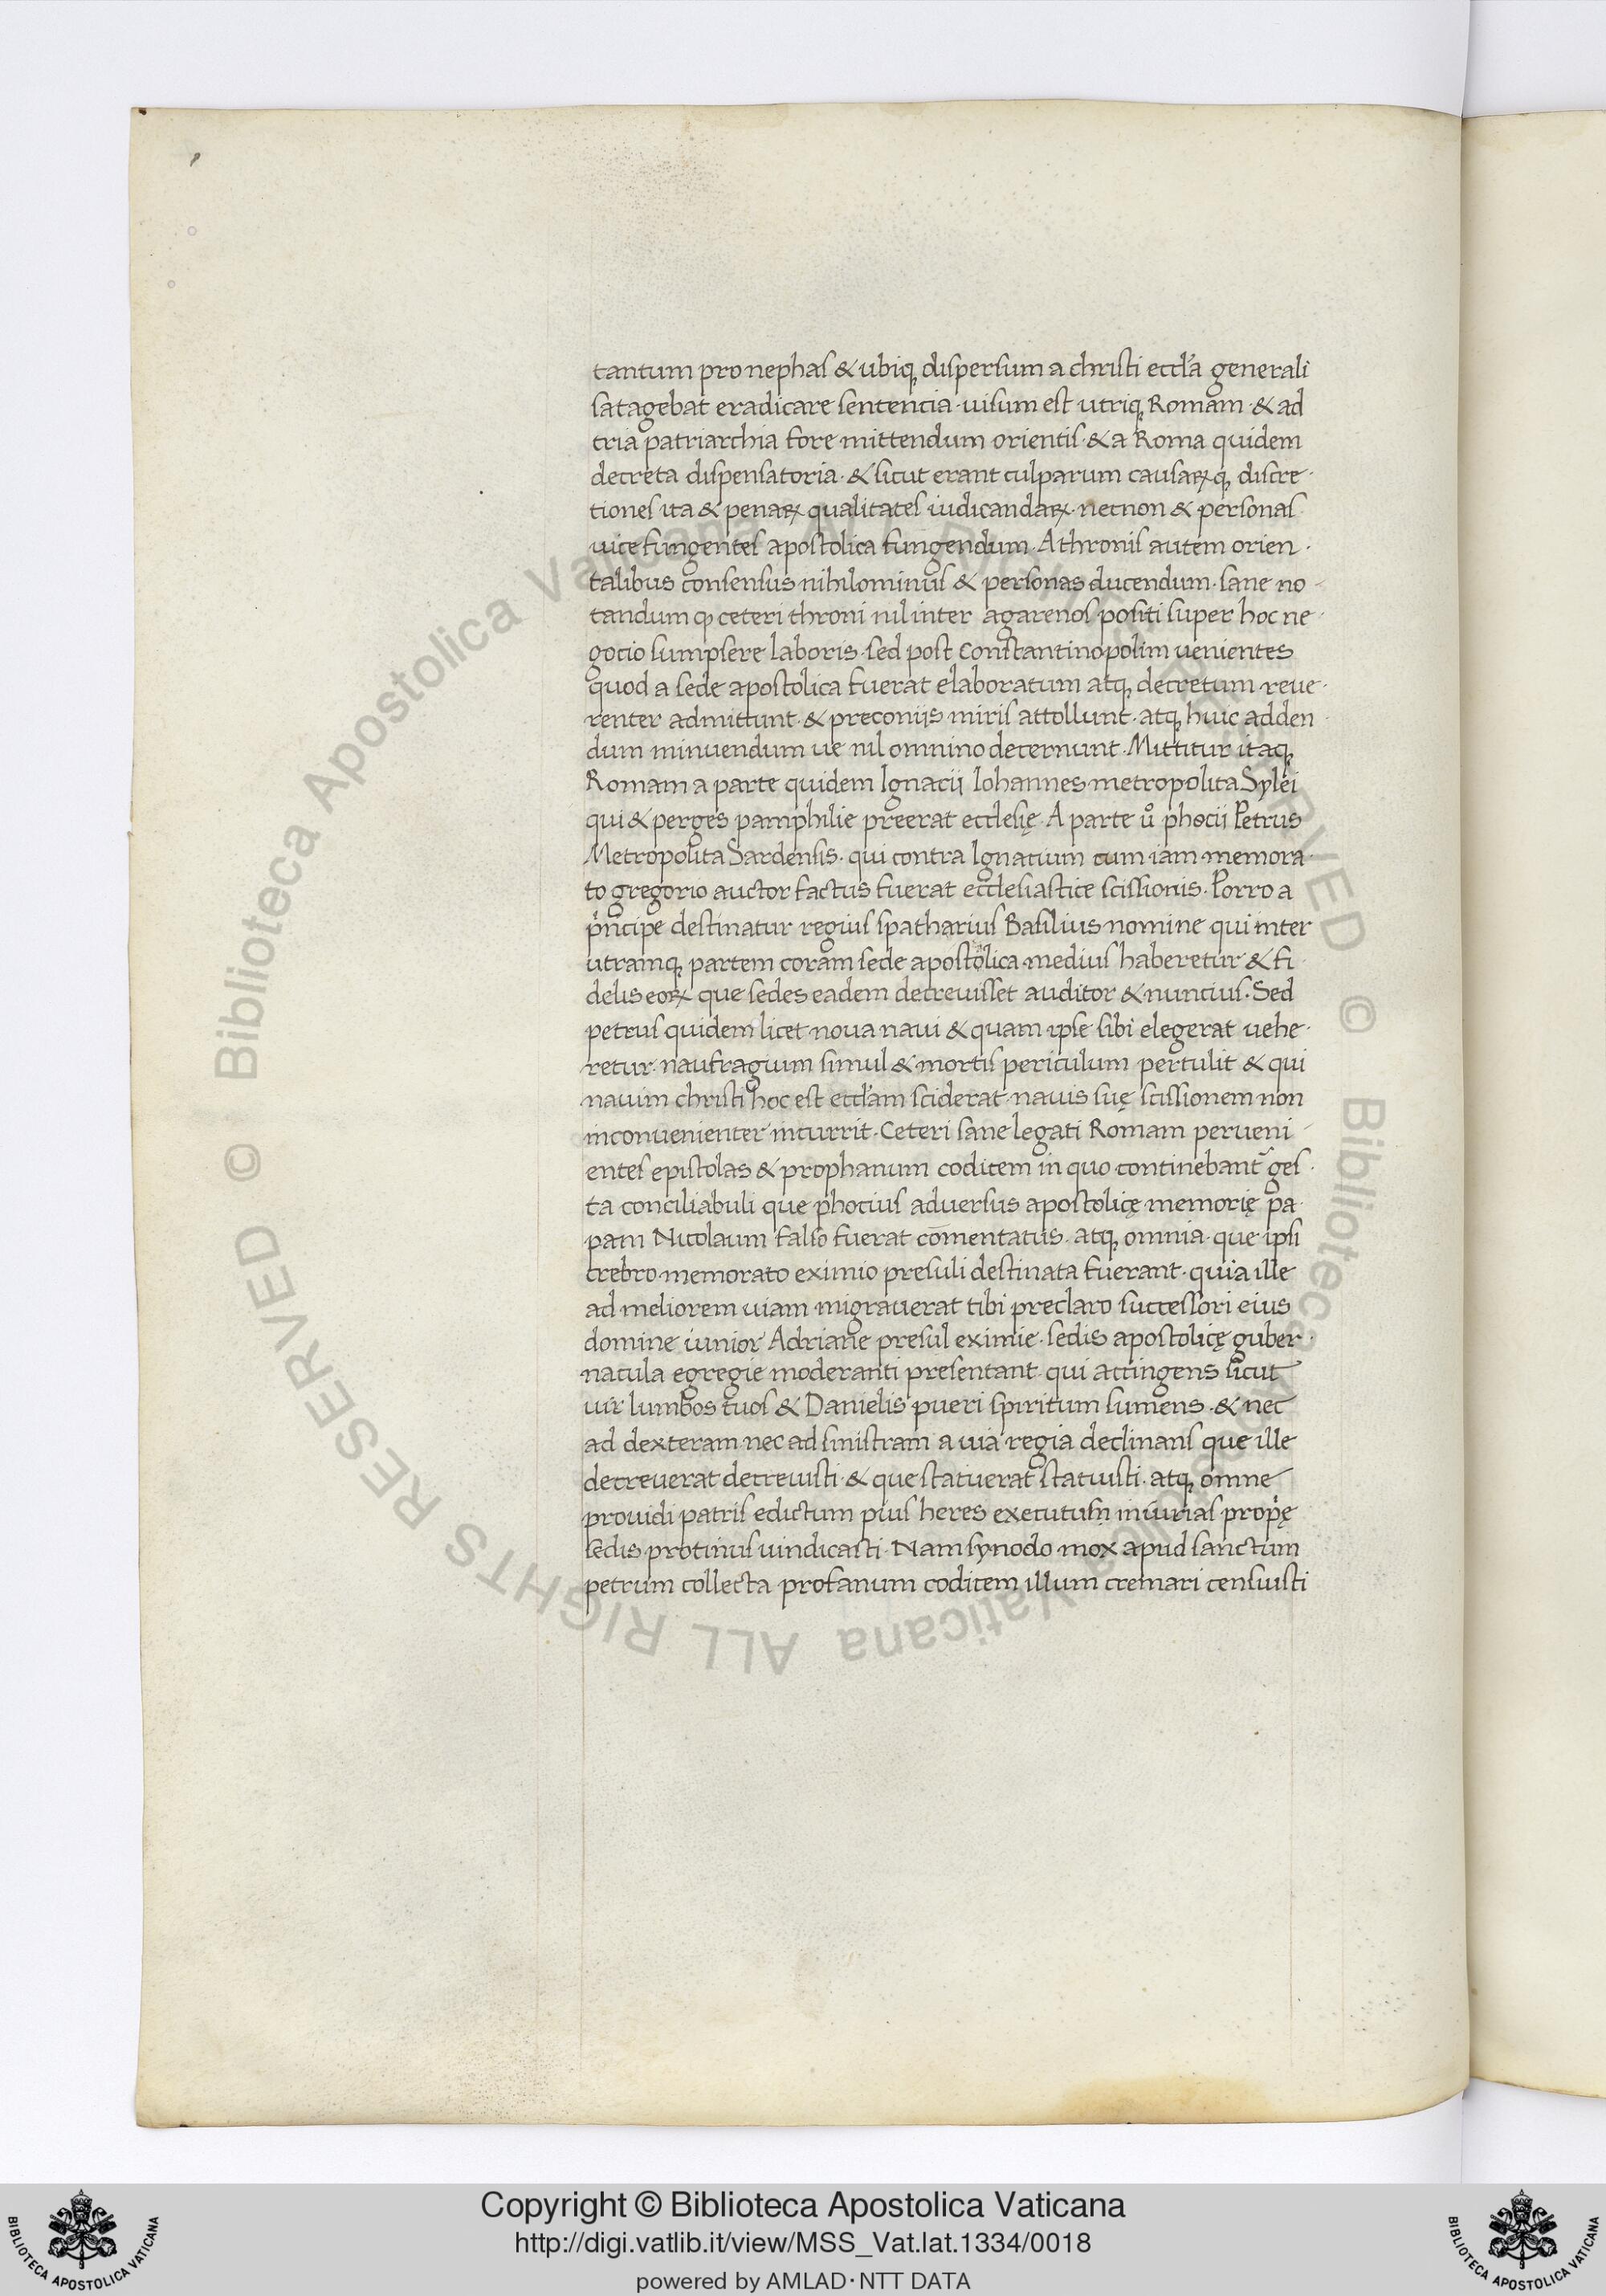 tantum pro nephas & ubiq; dispersum a christi eccl'a generali
satagebat eradicare sentencia · uisum est utriq; Romam · & ad
tria patriarchia fore mittendum orientis · & a Roma quidem
decreta dispensatoria · & sicut erant culparum causaꝝq; discre·
tiones ita & penaꝝ qualitates iudicandaꝝ · necnon & personas
uice fungentes apostolica fungendum · A thronis autem orien·
talibus consensus nihilominus & personas ducendum · sane no-
tandum ꝙ ceteri throni nil inter agarenos positi super hoc ne·
gocio sumpsere laboris · sed post Constantinopolim uenientes
quod a sede apostolica fuerat elaboratum atq; decretum · reue·
renter admittunt · & preconijs miris attollunt · atq; huic adden
dum minuendum ue nil omnino decernunt · Mittitur itaq;
Romam a parte quidem Ignacij Iohannes metropolita Sylei
qui & perges pamphilie preerat ecclesię · A parte u͛o phocii Petrus
Metropolita Sardensis · qui contra Ignatium cum iam memora·
to gregorio auctor factus fuerat ecclesiastice scissionis · Porro a
pͥncipe destinatur regius spatharius Basilius nomine qui inter
utramq; partem coram sede apostolica medius haberetur & fi·
delis eoꝝ que sedes eadem decreuisset auditor & nuncius · Sed
petrus quidem licet noua naui & quam ipse sibi elegerat uehe·
retur · naufragium simul & mortis periculum pertulit & qui
nauim christi hoc est eccl'am sciderat · nauis suę scissionem non
inconuenienter incurrit · Ceteri sane legati Romam perueni-
entes epistolas & prophanum codicem in quo continebant᷑ ges·
ta conciliabuli que phocius aduersus apostolicę memorię pa·
pam Nicolaum falso fuerat cōmentatus · atq; omnia · que ipsi
crebro memorato eximio presuli destinata fuerant · quia ille
ad meliorem uiam migrauerat tibi preclaro successori eius
domine iunior Adriane presul eximie · sedis apostolicę guber·
nacula egregie moderanti presentant · qui accingens sicut
uir lumbos tuos & Danielis pueri spiritum sumens · & nec
ad dexteram nec ad sinistram a uia regia declinans que ille
decreuerat decreuisti · & que statuerat statuisti · atq; omne
prouidi patris edictum pius heres executus iniurias propͥę
sedis protinus uindicasti · Nam synodo mox apud sanctum
petrum collecta profanum codicem illum cremari censuisti
© Biblioteca Apostolica Vaticana ALL RIGHTS RESERVED © Biblioteca Apostolica Vaticana ALL RIGHTS RESERVED
Copyright © Biblioteca Apostolica Vaticana
http://digi.vatlib.it/view/MSS_Vat.lat.1334/0018
powered by AMLAD·NTT DATA
BIBLIOTECA APOSTOLICA VATICANA
BIBLIOTECA APOSTOLICA VATICANA